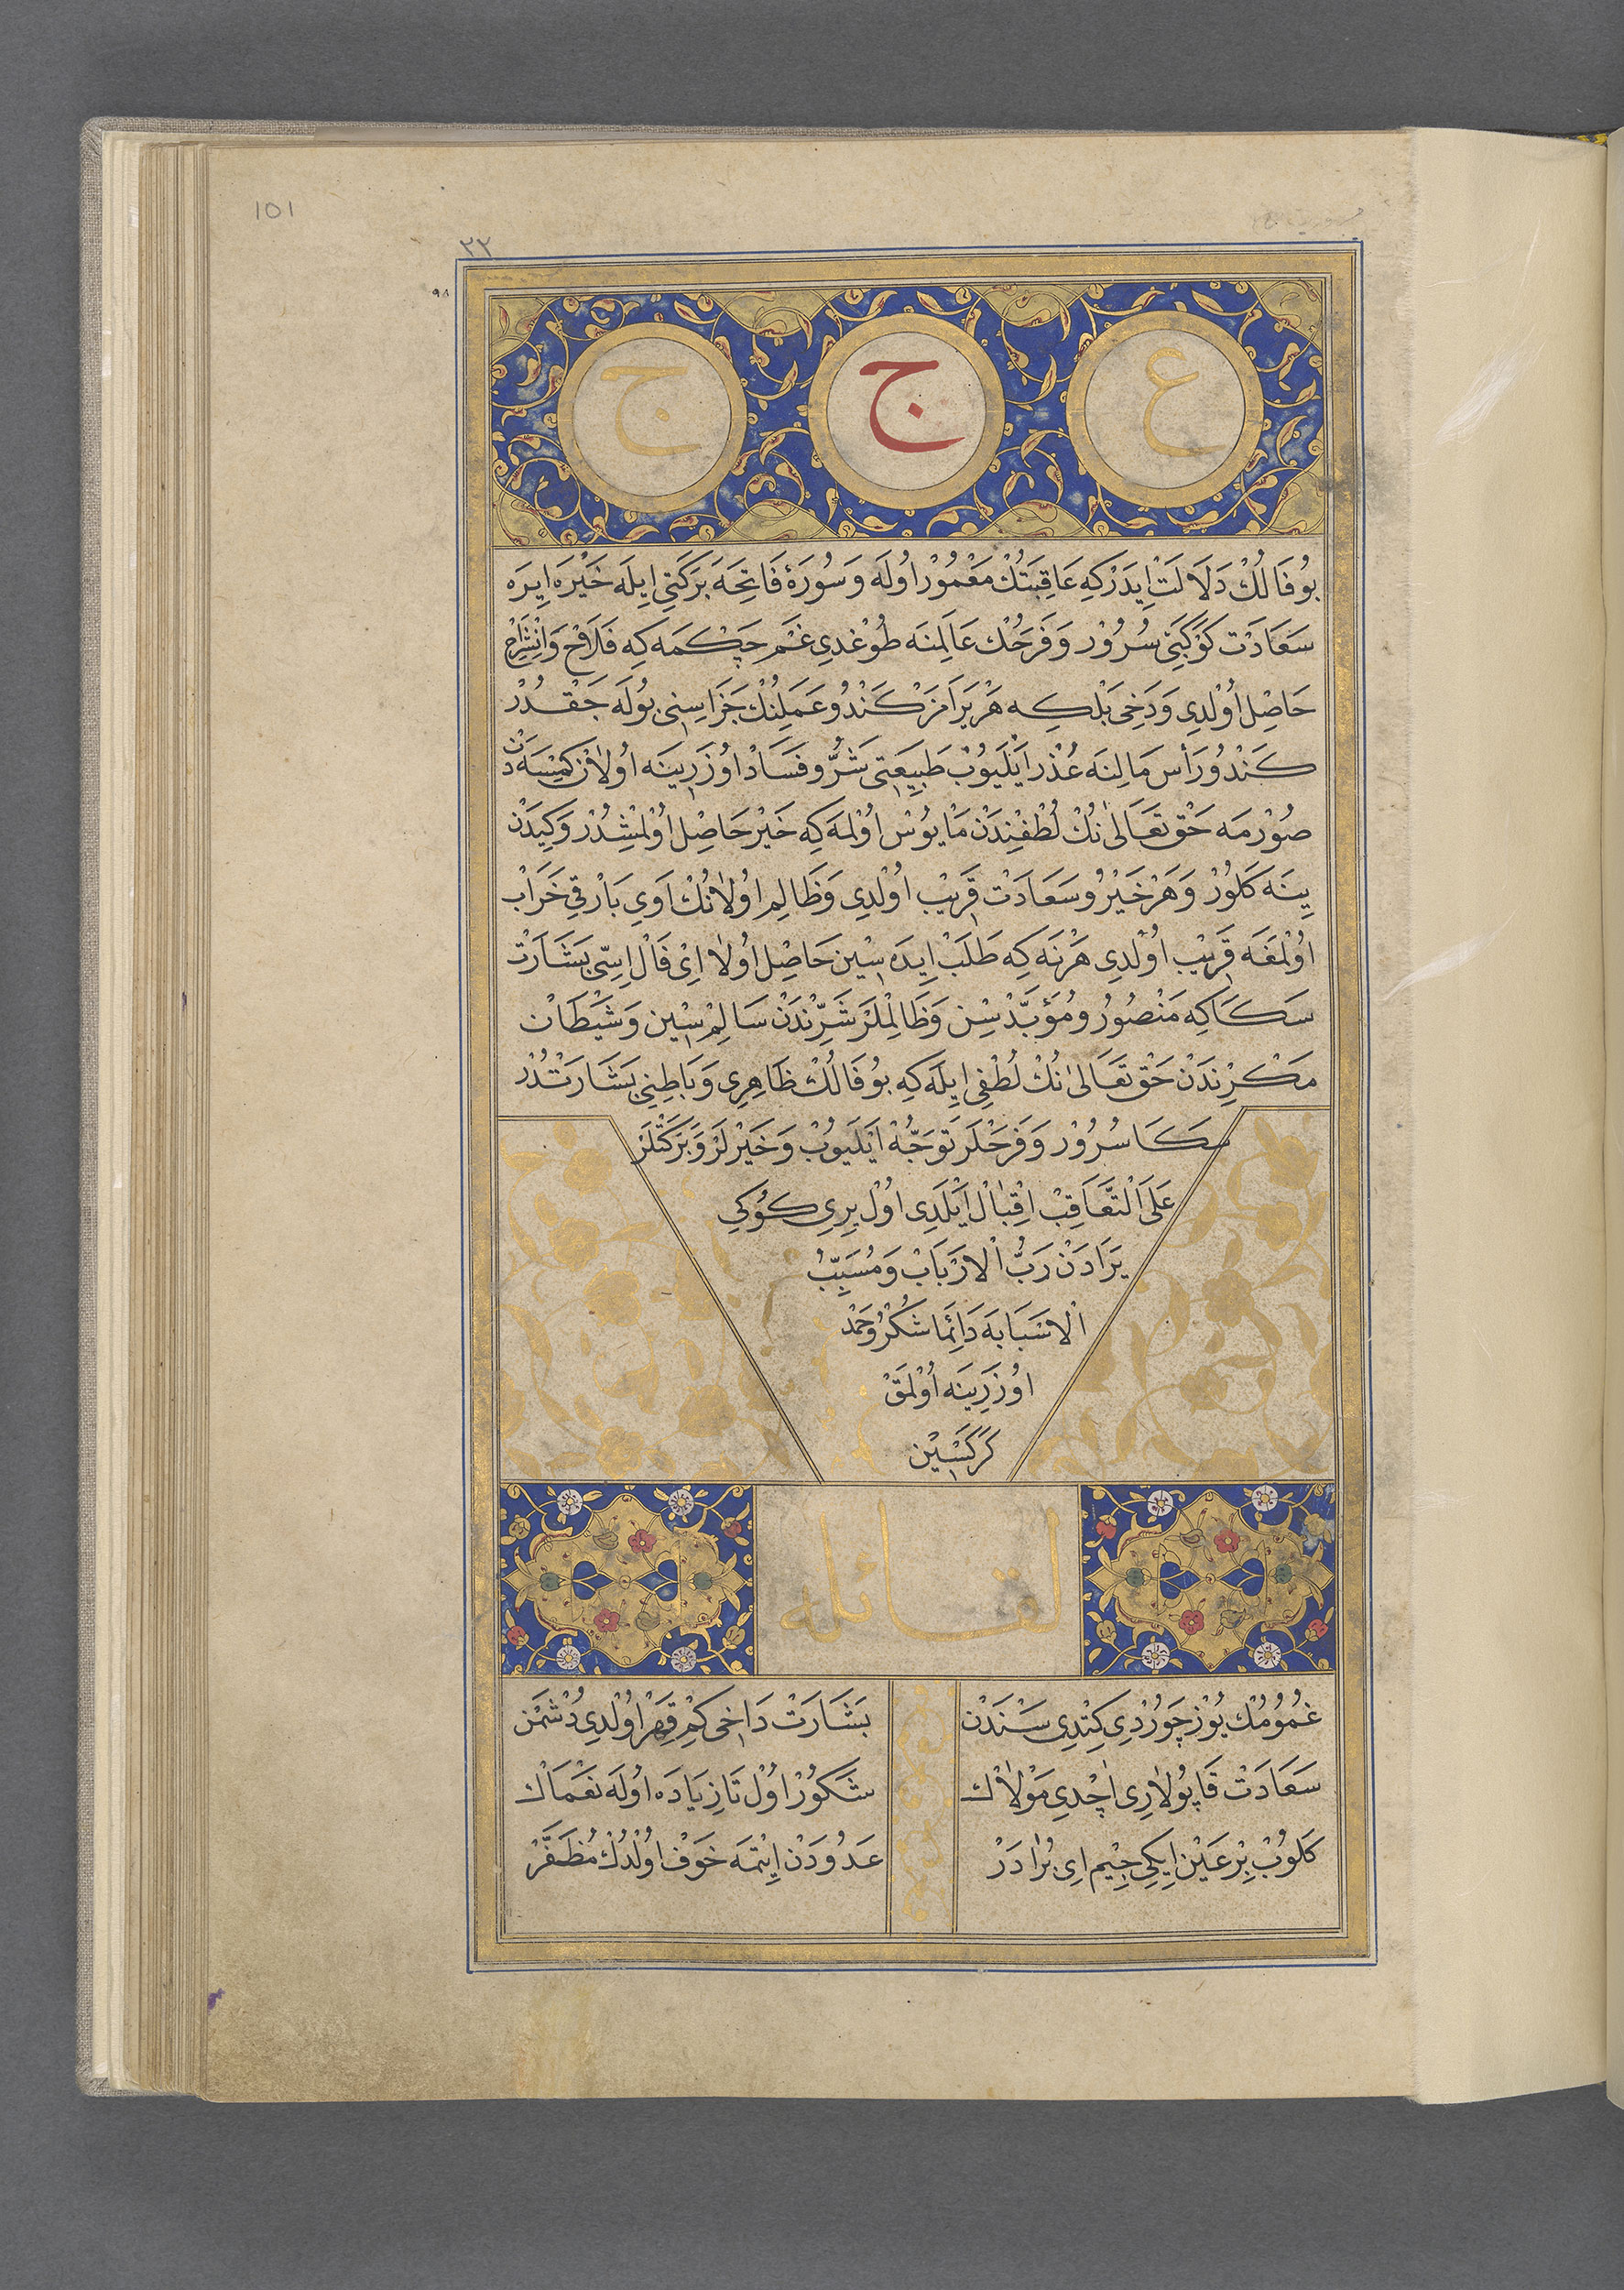 101
۲۲
۹۸
ع ج ج
بُوفَالُكْ دَلَالَتْ اِيدَرْكِهِ عَاقِبَتُكْ مَعْمُورْ اُولَه وَسُورَهٔ فَاتِحَه بَرَكَتِی اِيلَه خَيْرَه اِيرَه
سَعَادَتْ كَوْكَبِی سُرُورْ وَفَرَحُكْ عَالَمِنَه طُوغْدِی غَمْ چَكْمَه كِه فَلَاحْ وَانْشِرَاحْ
حَاصِلْ اُولْدِی وَدَخِی بَلْكِه هَرْ يَرَامَزْ كَنْدُو عَمَلِنُكْ جَزَاسِنِی بُولَه جَقْدُرْ
كَنْدُو رَأْس مَالِنَه عُذْرْ اَيْلَيُوبْ طَبِيعَتِی شَرُّ و فَسَادْ اُوزَرِينَه اُولَانْ كِمْسَه دَنْ
صُورْمَه حَقْ تَعَالٰی نُكْ لُطْفِنْدَنْ مَأْيُوسْ اُولْمَه كِه خَيْرْ حَاصِلْ اُولْمِشْدُرْ وَكِيدَنْ
يِنَه كَلُورْ وَهَرْ خَيْرُ و سَعَادَتْ قَرِيبْ اُولْدِی وَظَالِمْ اُولَانُكْ اَوِی بَارْقِی خَرَابْ
اُولْمَغَه قَرِيبْ اُولْدِی هَرْنَه كِه طَلَبْ اِيدَه سِينْ حَاصِلْ اُولَا اِی فَالْ اِسِّی بَشَارَتْ
سَكَا كِه مَنْصُورُ و مُؤَيَّدْ سِنْ وَظَالِمْلَرْ شَرِّنْدَنْ سَالِمْ سِينْ وَشَيْطَانْ
مَكْرِنْدَنْ حَقْ تَعَالٰی نُكْ لُطْفِی اِيلَه كِه بُوفَالُكْ ظَاهِرِی وَبَاطِنِی بَشَارَتْدُرْ
سَكَا سُرُورْ وَفَرَحْلَرْ تَوَجُّهْ اَيْلَيُوبْ وَخَيْرْلَرْ وَبَرَكَتْلَرْ
عَلَی التَّعَاقِبْ اِقْبَالْ اَيْلَدِی اُولْ يِرِی كُوكِی
يَرَادَنْ رَبُّ الْاَرْبَابْ وَمُسَبِّبُ
الْاَسْبَابَه دَائِمَا شُكْرُ وحَمْد
اُوزَرِينَه اُولْمَقْ
كَرَكْسِينْ
لقائله
غُمُومُكْ يُوزْ چَوُرْدِی كِتْدِی سَنْدَنْ
بَشَارَتْ دَاخِی كِمْ قَهْرْ اُولْدِی دُشْمَنْ
سَعَادَتْ قَاپُولَارِی اٰچْدِی مَوْلَاكْ
شَكُورْ اُولْ تَا زِيَادَه اُولَه نَعْمَاكْ
كَلُوبْ بِرْ عَيْنْ اِيكِی جِيمْ اِی بُرَادَرْ
عَدُودَنْ اِيتْمَه خَوْفْ اُولْدُكْ مُظَفَّرْ